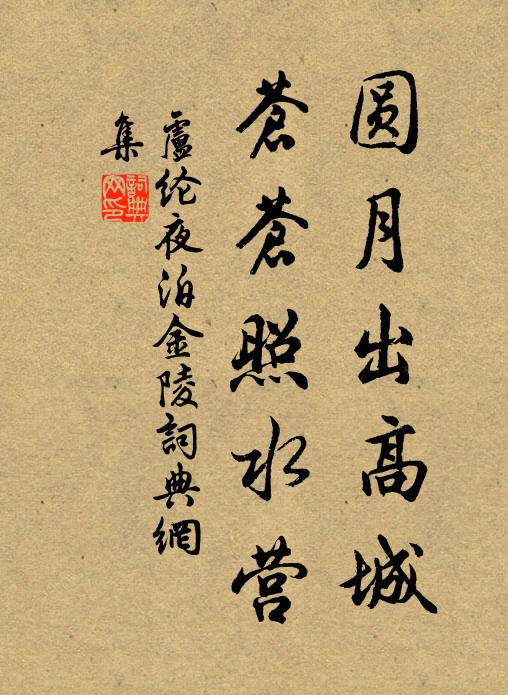 圆月出高城
蒼蒼照水营
盧纶夜泊金陵詞典網
集
詞典网印